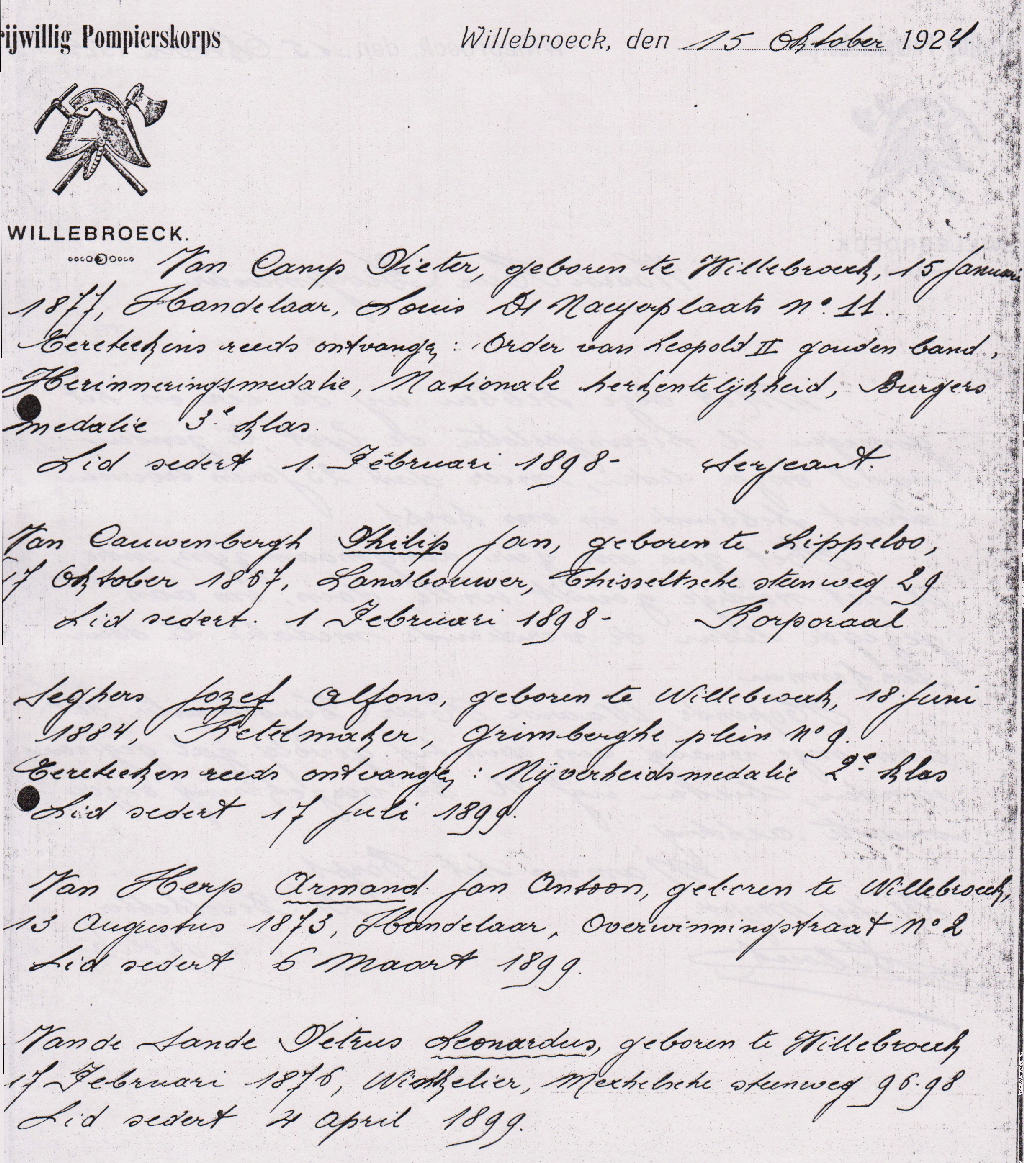 rijwillig Pompierskorps
Willebroeck, den 15 Oktober 1924.
WILLEBROECK.
Van Camp Pieter, geboren te Willebroeck, 15 Januari
1877, Handelaar, Louis De Naeyerplaats No 11.
Eereteekens reeds ontvangen : Order van Leopold II gouden band,
Herinneringsmedalie, Nationale herkentelijkheid, Burgers
medalie 3e klas.
Lid sedert 1. Februari 1898- Serjeant.
Van Cauwenbergh Philip Jan, geboren te Lippeloo,
17 Oktober 1867, Landbouwer, Thisseltsche steenweg 29
Lid sedert. 1 Februari 1898- Korporaal
Seghers Jozef Alfons, geboren te Willebroeck, 18 Juni
1884, Ketelmaker, Grimberghe plein No 9.
Eereteeken reeds ontvangen : Nijverheidsmedalie 2e klas
Lid sedert 17 Juli 1899.
Van Herp Armand Jan Antoon, geboren te Willebroeck,
13 Augustus 1873, Handelaar, Overwinningstraat No 2
Lid sedert 6 Maart 1899.
Van de Sande Petrus Leonardus, geboren te Willebroeck
17 Februari 1876, Winkelier, Mechelsche steenweg 96-98
Lid sedert 4 April 1899.